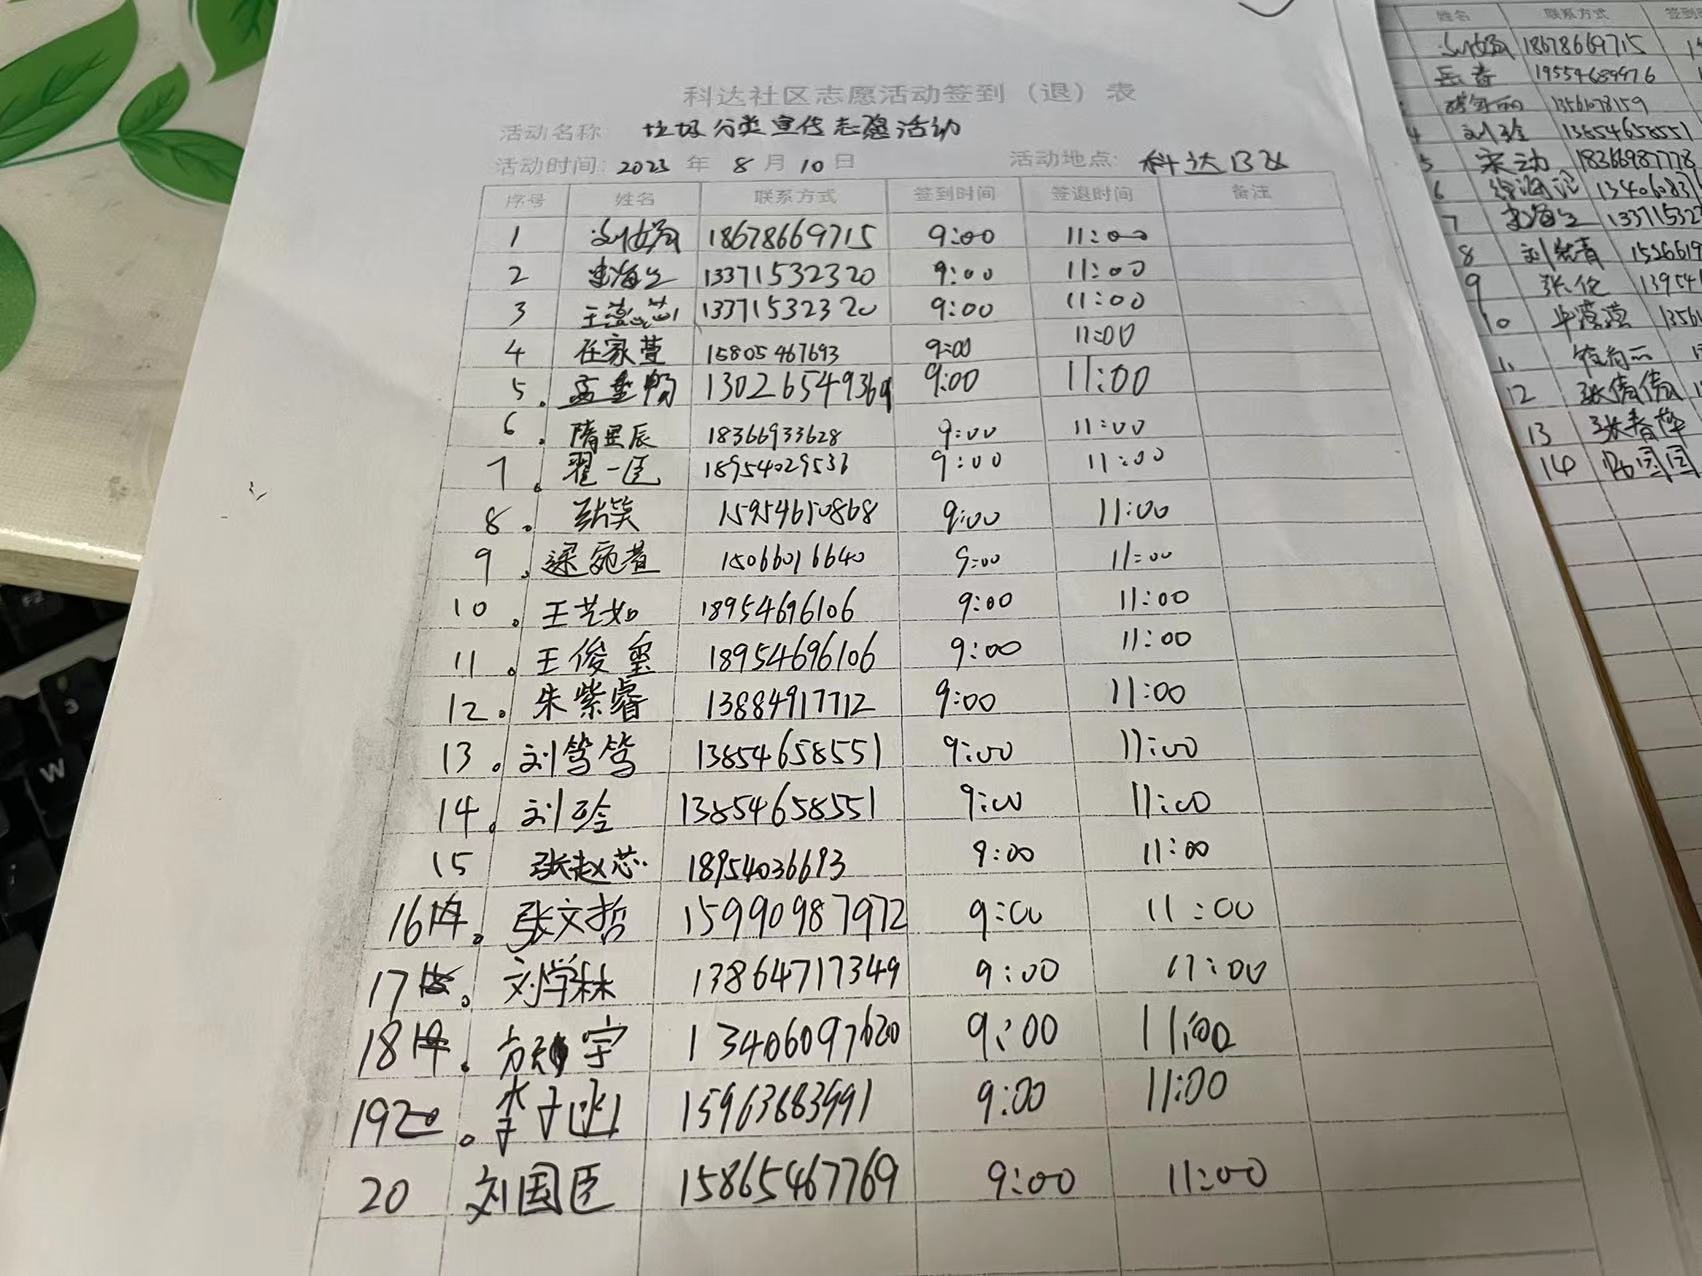 科达社区志愿活动签到（退）表
活动名称: 垃圾分类宣传志愿活动
活动时间: 2023 年 8 月 10 日 活动地点: 科达小区
序号 姓名 联系方式 签到时间 签退时间 备注
1 18678669715 9:00 11:00
2 13371532320 9:00 11:00
3 13371532320 9:00 11:00
4 任家萱 15805467693 9:00 11:00
5. 13026549369 9:00 11:00
6. 隋昱辰 18366933628 9:00 11:00
7. 翟一臣 9:00 11:00
8. 9:00 11:00
9. 梁苑菁 15066016640 9:00 11:00
10. 王艺如 18954696106 9:00 11:00
11. 王俊玺 18954696106 9:00 11:00
12. 朱紫睿 13884917712 9:00 11:00
13. 刘笃笃 13854658551 9:00 11:00
14. 刘玲 13854658551 9:00 11:00
15 张赵芯 18954036693 9:00 11:00
16. 张文哲 15990987972 9:00 11:00
17. 刘学林 13864717349 9:00 11:00
18. 13406097620 9:00 11:00
19. 李子 15963683991 9:00 11:00
20 刘国臣 15865467769 9:00 11:00
姓名 联系方式
18678669715
岳春 19554689976
刘玲 13854658551
5 宋动 18366987778
6 13406083
7 13371532
8 1526619
9 张伦 13954
10
12 张倩倩
13 张春
14